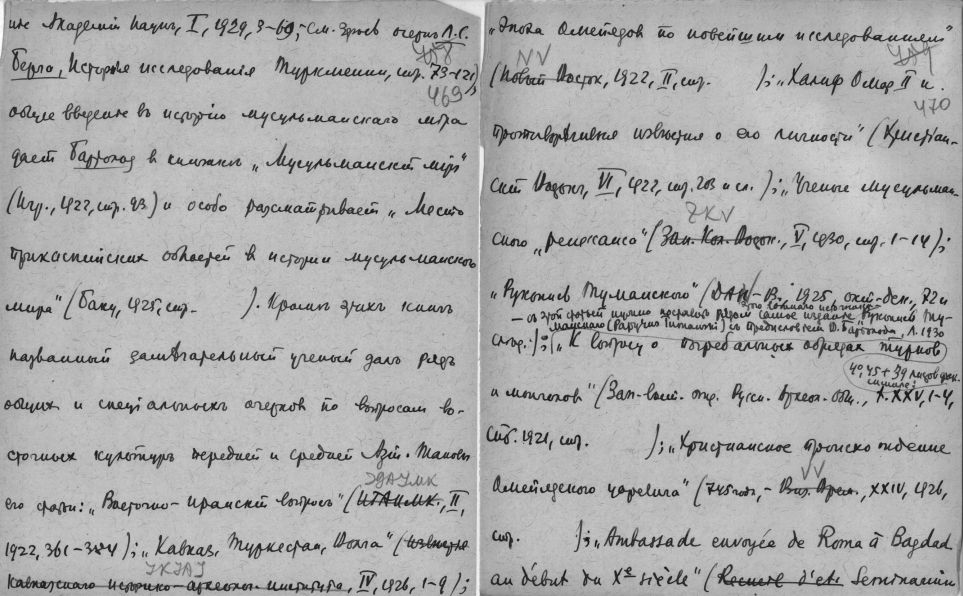 Академіи Наукъ, I, 1929, 3-69; - См. здѣсь очеркъ Л.С.
458
Берга, Исторія изслѣдованія Туркменіи, стр. 73-121
469
общее введеніе въ исторію мусульманскаго міра
даетъ Бартольд въ книжкѣ „Мусульманскій міръ"
1922, стр. 93) и особо разсматриваетъ „Мѣсто
прикаспійскихъ областей въ исторіи мусульманскаго
мира" (Баку, 1925, стр. ). Кромѣ этихъ книгъ
названный замѣчательный ученый далъ рядъ
общихъ и спеціальныхъ очерковъ по вопросамъ во-
сточныхъ культуръ передней и средней Азіи. Таковы
его статьи: „Восточно-иранскій вопросъ" (ИГАИМК, II,
1922, 361-384); „Кавказ, Туркестан, Волга" (Известия
Кавказскаго историко-археолог. института, IV, 1926, 1-9);
„Эпоха Омейядов по новейшим исследованиям"
NV 459
(Новый Восток, 1922, II, стр. ); „Халиф Омар II и
470
противорѣчивыя извѣстія о его личности" (Христиан-
скій Восток, VI, 1922, стр. 203 и сл. ); „Ученые мусульман-
ZKV
ского „ренессанса" (Зап. Кол. Восток., V, 1930, стр. 1-14);
„Рукопись Туманского" (ДАН-В. 1925 окт-дек., 72 и
— съ этой статьей нужно поставить рядом самое издание рукописи Ту-
манскаго съ предисловіем В. Бартольда, Л. 1930
след.); „К вопросу о погребальных обрядах турков
4°, 45 + 39 листов фак-
симиле;
и монголов" (Зап. вост. отд. Русск. Археол. Общ., т. XXV, 1-4,
Спб. 1921, стр. ); „Христианское происхождение
VV
Омейядского царевича" (745 года, - Виз. Врем., XXIV, 1926,
стр. ); „Ambassade envoyée de Roma à Bagdad
au début du Xe siècle" (Recueil d'ét. Seminarium